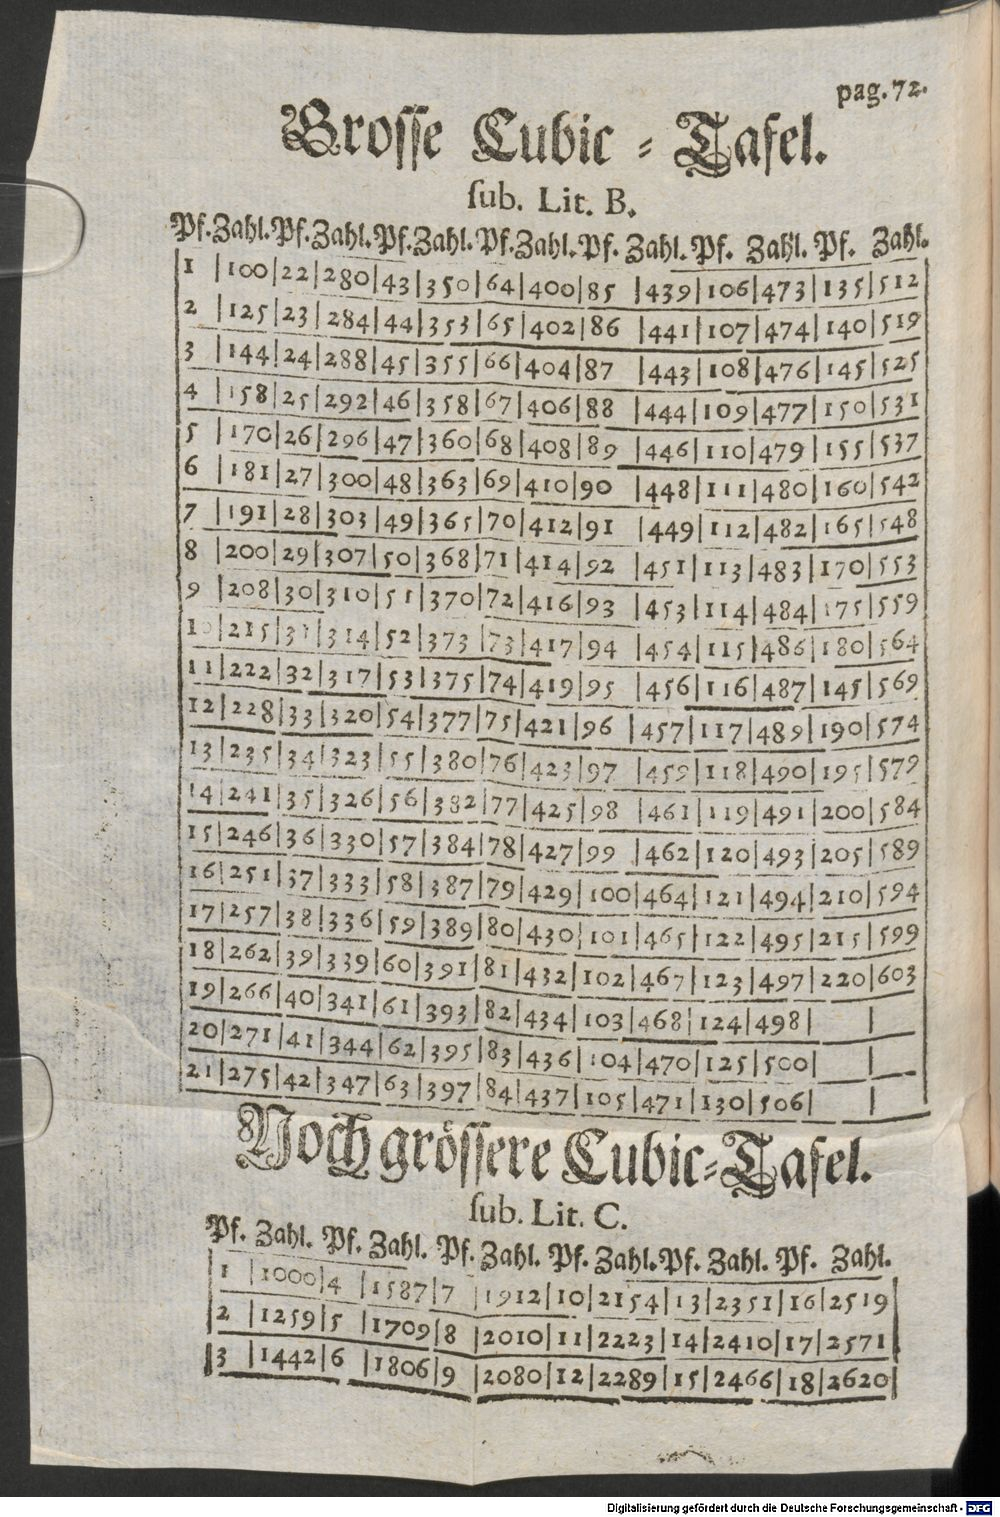 pag. 72.
Grosse Cubic-Tafel.
sub. Lit. B.
Pf. Zahl. Pf. Zahl. Pf. Zahl. Pf. Zahl. Pf. Zahl. Pf. Zahl. Pf. Zahl.
1 |100|22|280|43|350|64|400|85 |439|106|473|135|512
2 |125|23|284|44|353|65|402|86 |441|107|474|140|519
3 |144|24|288|45|355|66|404|87 |443|108|476|145|525
4 |158|25|292|46|358|67|406|88 |444|109|477|150|531
5 |170|26|296|47|360|68|408|89 |446|110|479|155|537
6 |181|27|300|48|363|69|410|90 |448|111|480|160|542
7 |191|28|303|49|365|70|412|91 |449|112|482|165|548
8 |200|29|307|50|368|71|414|92 |451|113|483|170|553
9 |208|30|310|51|370|72|416|93 |453|114|484|175|559
10|215|31|314|52|373|73|417|94 |454|115|486|180|564
11|222|32|317|53|375|74|419|95 |456|116|487|145|569
12|228|33|320|54|377|75|421|96 |457|117|489|190|574
13|235|34|323|55|380|76|423|97 |459|118|490|195|579
14|241|35|326|56|382|77|425|98 |461|119|491|200|584
15|246|36|330|57|384|78|427|99 |462|120|493|205|589
16|251|37|333|58|387|79|429|100|464|121|494|210|594
17|257|38|336|59|389|80|430|101|465|122|495|215|599
18|262|39|339|60|391|81|432|102|467|123|497|220|603
19|266|40|341|61|393|82|434|103|468|124|498| |
20|271|41|344|62|395|83|436|104|470|125|500| |
21|275|42|347|63|397|84|437|105|471|130|506| |
Noch grössere Cubic-Tafel.
sub. Lit. C.
Pf. Zahl. Pf. Zahl. Pf. Zahl. Pf. Zahl. Pf. Zahl. Pf. Zahl.
1 |1000|4 |1587|7 |1912|10|2154|13|2351|16|2519
2 |1259|5 |1709|8 |2010|11|2223|14|2410|17|2571
3 |1442|6 |1806|9 |2080|12|2289|15|2466|18|2620
Digitalisierung gefördert durch die Deutsche Forschungsgemeinschaft - DFG